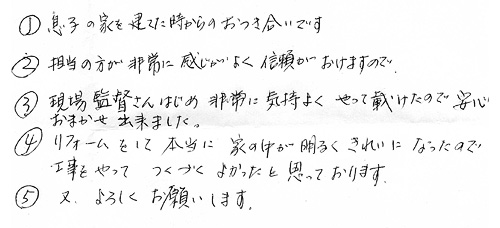 ① 息子の家を建てた時からのおつき合いです
② 担当の方が非常に感じがよく信頼がおけますので、
③ 現場監督さんはじめ非常に気持よくやって戴けたので安心
おまかせ出来ました。
④ リフォームをして本当に家の中が明るくきれいになったので
工事をやってつくづくよかったと思っております。
⑤ 又よろしくお願いします。